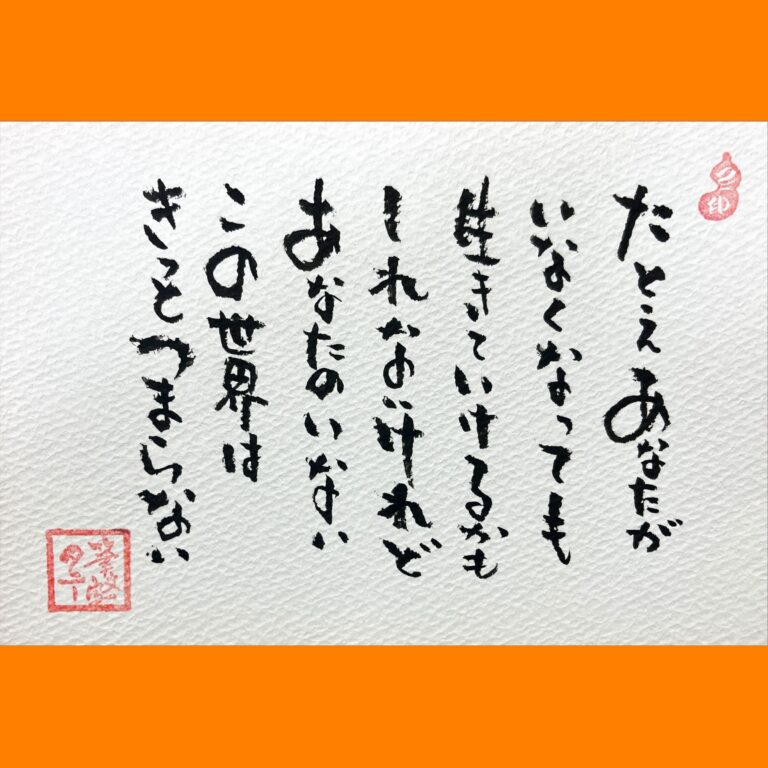 たとえあなたが
いなくなっても
生きていけるかも
しれないけれど
あなたのいない
この世界は
きっとつまらない